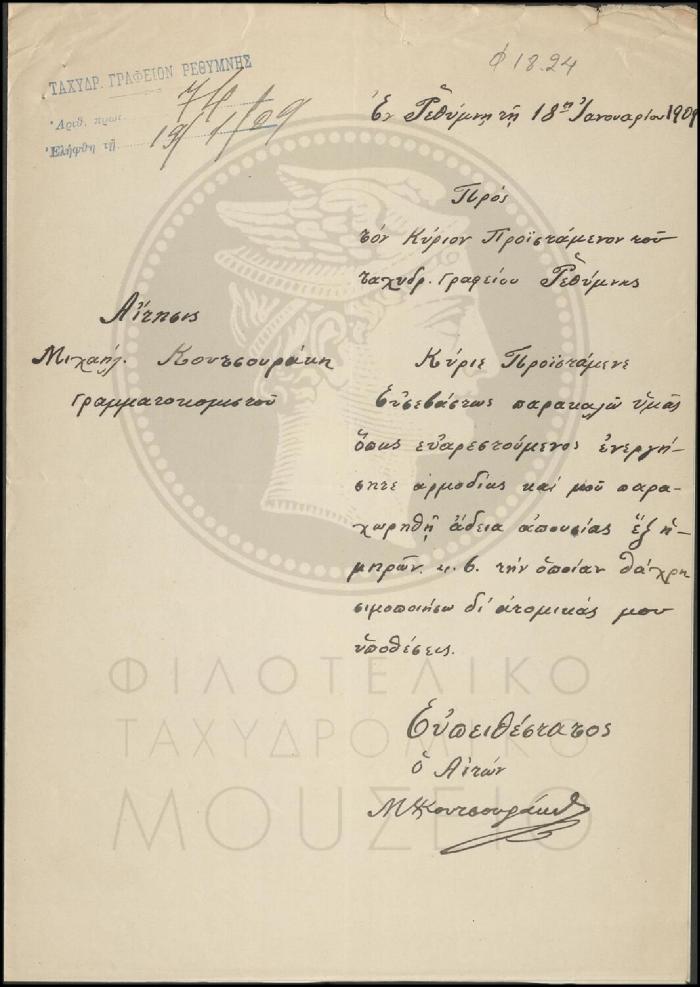 Φ 18.24
ΤΑΧΥΔΡ. ΓΡΑΦΕΙΟΝ ΡΕΘΥΜΝΗΣ
Ἀριθ. πρωτ.
Ἐλήφθη τῇ 19/1/09
Ἐν Ῥεθύμνῃ τῇ 18ῃ Ἰανουαρίου 1909
Πρός
τόν Κύριον Προϊστάμενον τοῦ
ταχυδρ. Γραφείου Ῥεθύμνης
Αἴτησις
Μιχαήλ. Κουτσουράκη
γραμματοκομιστοῦ
Κύριε Προϊστάμενε
Εὐσεβάστως παρακαλῶ ὑμᾶς
ὅπως εὐαρεστούμενος ἐνεργή-
σητε ἁρμοδίως καί μοῦ παρα-
χωρηθῇ ἄδεια ἀπουσίας ἕξ ἡ-
μερῶν. κ. ἐ. τήν ὁποίαν θά χρη
σιμοποιήσω δι' ἀτομικάς μου
ὑποθέσεις.
Εὐπειθέστατος
ὁ Αἰτῶν
ΜΚουτσουράκης
ΦΙΛΟΤΕΛΙΚΟ
ΤΑΧΥΔΡΟΜΙΚΟ
ΜΟΥΣΕΙΟ